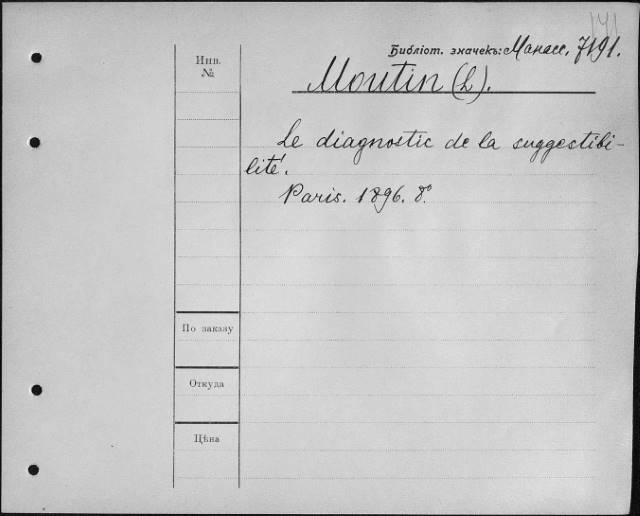 141
Библіот. значекъ: Манасс. 7191.
Инв.
№
Moutin (L).
Le diagnostic de la suggestibi-
lité.
Paris. 1896. 8º.
По заказу
Откуда
Цѣна